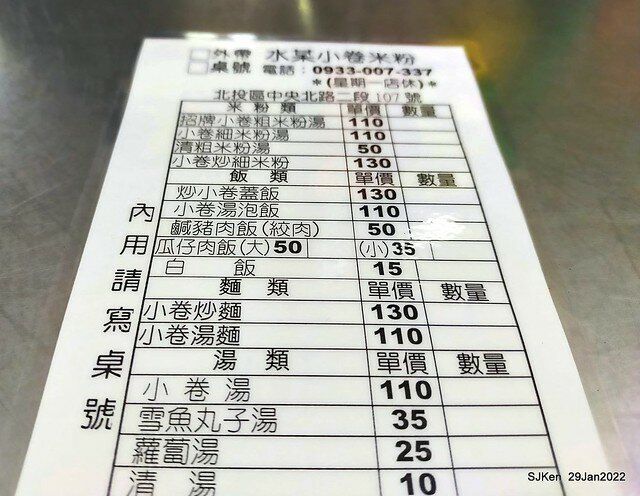 □外帶 水某小卷米粉
□桌號 電話：0933-007-337
*(星期一店休)*
北投區中央北路二段107號
米粉類 單價 數量
招牌小卷粗米粉湯 110
小卷細米粉湯 110
清粗米粉湯 50
小卷炒細米粉 130
飯類 單價 數量
炒小卷蓋飯 130
小卷湯泡飯 110
鹹豬肉飯(絞肉) 50
瓜仔肉飯(大)50 (小)35
白飯 15
麵類 單價 數量
小卷炒麵 130
小卷湯麵 110
湯類 單價 數量
小卷湯 110
雪魚丸子湯 35
蘿蔔湯 25
清湯 10
內用請寫桌號
SJKen 29Jan2022